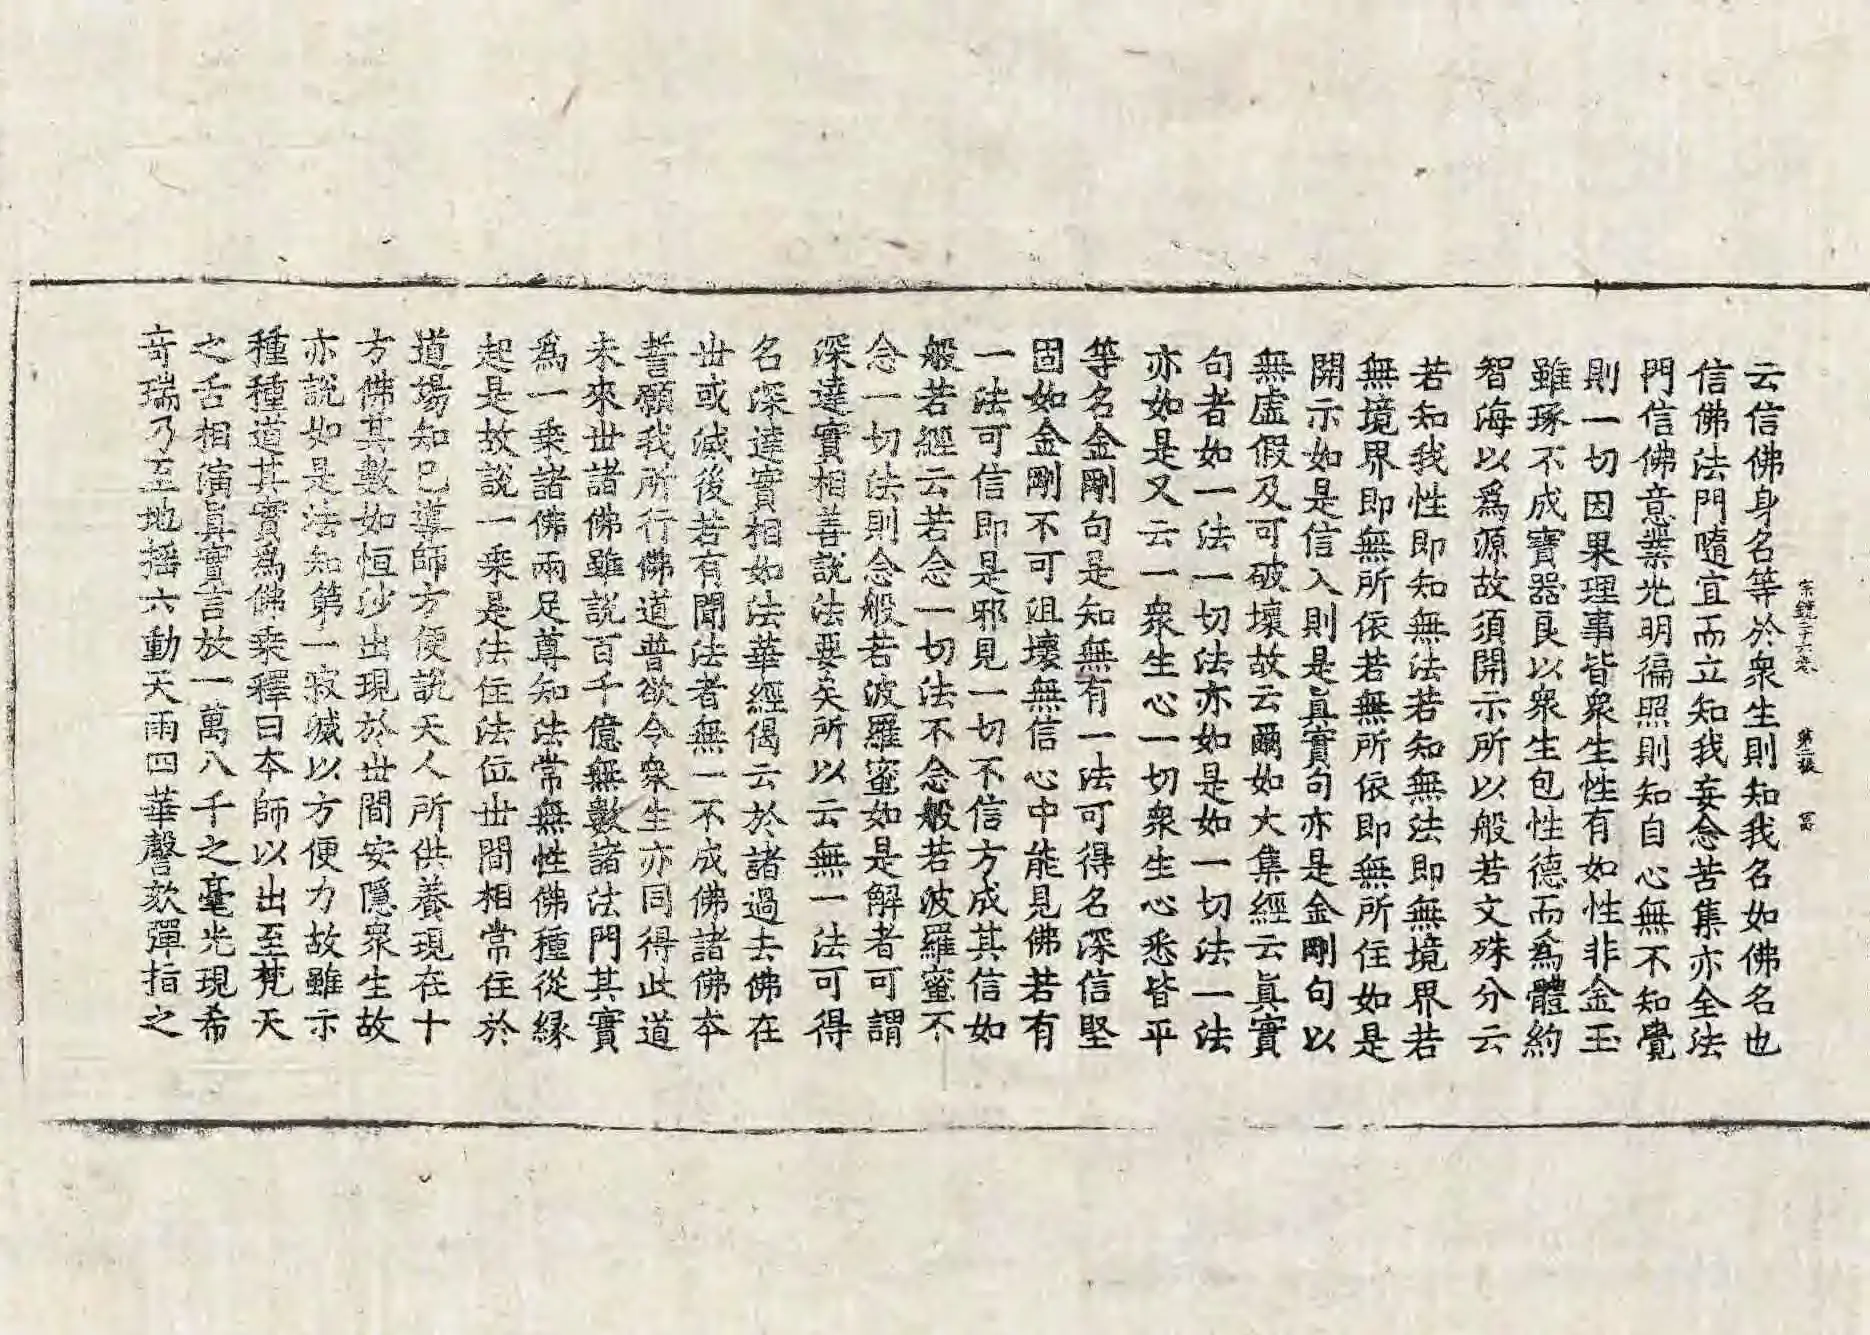 宗鏡二十六卷 第二板 冨
云信佛身名等於衆生則知我名如佛名也
信佛法門隨宜而立知我妄念苦集亦全法
門信佛意業光明徧照則知自心無不知覺
則一切因果理事皆衆生性有如性非金玉
雖琢不成寶器良以衆生包性德而爲體約
智海以爲源故須開示所以般若文殊分云
若知我性即知無法若知無法即無境界若
無境界即無所依若無所依即無所住如是
開示如是信入則是眞實句亦是金剛句以
無虛假及可破壞故云爾如大集經云眞實
句者如一法一切法亦如是如一切法一法
亦如是又云一衆生心一切衆生心悉皆平
等名金剛句是知無有一法可得名深信堅
固如金剛不可沮壞無信心中能見佛若有
一法可信即是邪見一切不信方成其信如
般若經云若念一切法不念般若波羅蜜不
念一切法則念般若波羅蜜如是解者可謂
深達實相善說法要矣所以云無一法可得
名深達實相如法華經偈云於諸過去佛在
世或滅後若有聞法者無一不成佛諸佛本
誓願我所行佛道普欲令衆生亦同得此道
未來世諸佛雖說百千億無數諸法門其實
爲一乘諸佛兩足尊知法常無性佛種從緣
起是故說一乘是法住法位世間相常住於
道場知已導師方便說天人所供養現在十
方佛其數如恒沙出現於世間安隱衆生故
亦說如是法知第一寂滅以方便力故雖示
種種道其實爲佛乘釋曰本師以出至梵天
之舌相演眞實言放一萬八千之毫光現希
奇瑞乃至地搖六動天雨四華謦欬彈指之